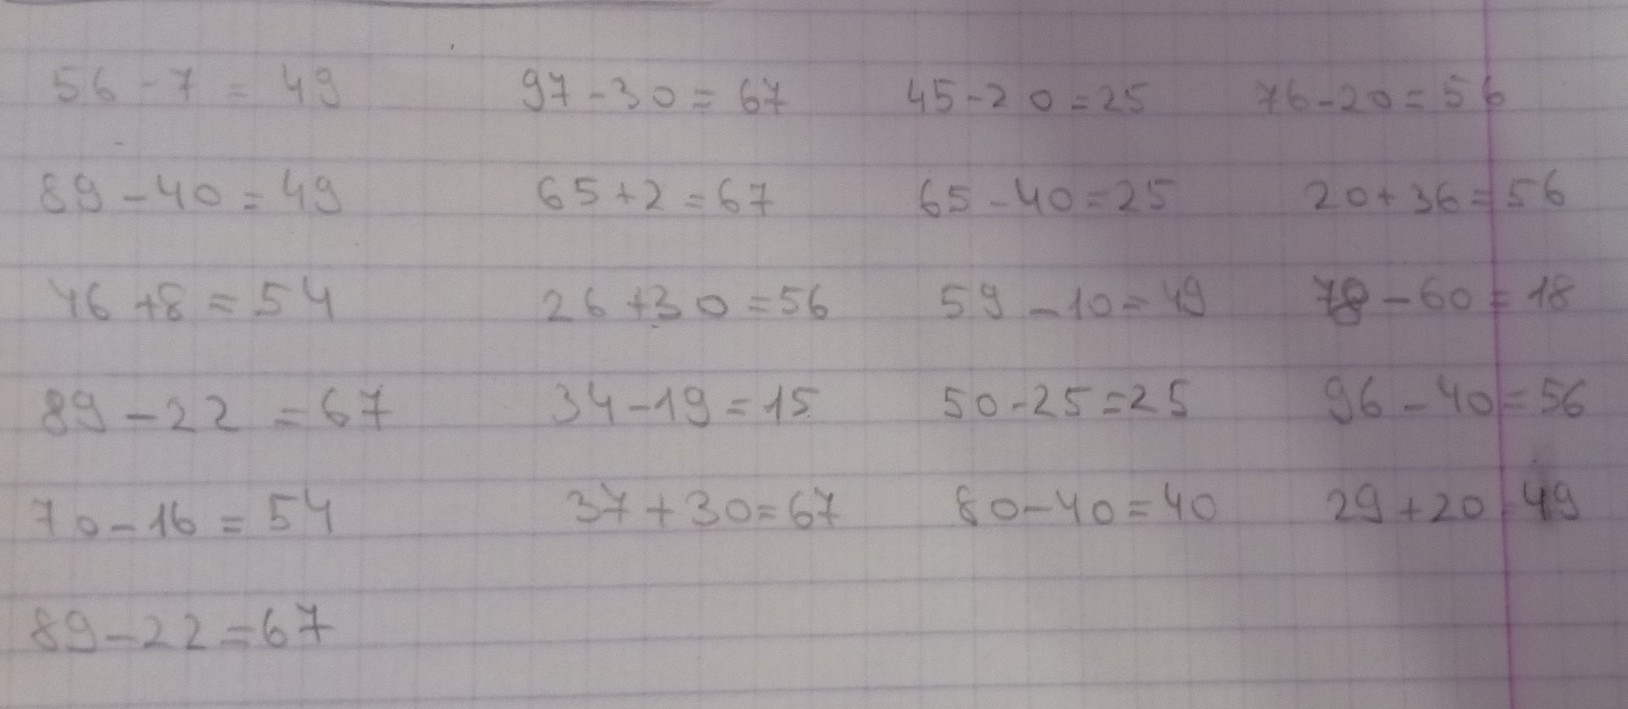 56 - 7 = 49 97 - 30 = 67 45 - 20 = 25 76 - 20 = 56
89 - 40 = 49 65 + 2 = 67 65 - 40 = 25 20 + 36 = 56
46 + 8 = 54 26 + 30 = 56 59 - 10 = 49 78 - 60 = 18
89 - 22 = 67 34 - 19 = 15 50 - 25 = 25 96 - 40 = 56
70 - 16 = 54 37 + 30 = 67 80 - 40 = 40 29 + 20 49
89 - 22 = 67